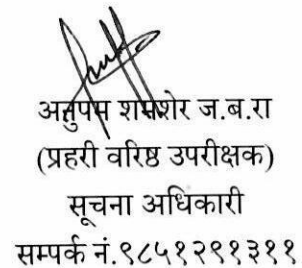 अनुपम शमशेर ज.ब.रा
(प्रहरी वरिष्ठ उपरीक्षक)
सूचना अधिकारी
सम्पर्क नं.९८५१२९१३११